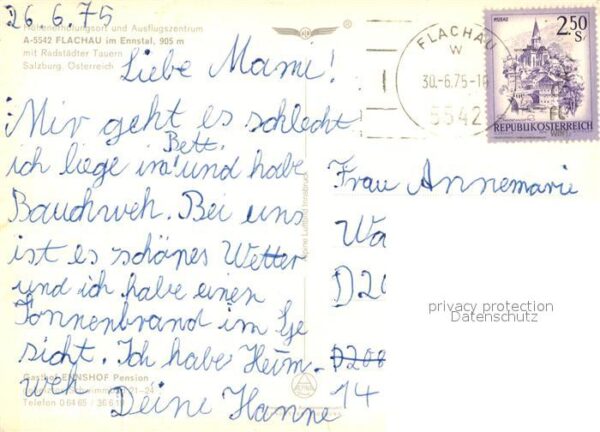 26.6.75
Höhenerholungsort und Ausflugszentrum
A-5542 FLACHAU im Ennstal, 905 m
mit Radstädter Tauern
Salzburg, Österreich
Liebe Mami!
Mir geht es schlecht
Bett
ich liege im und habe
Bauchweh. Bei uns
ist es schönes Wetter
und ich habe einen
Sonnenbrand im Ge
sicht. Ich habe Heim-
weh
Deine Hanne
Gasthof ENNSHOF Pension
21-24
Telefon 0 64 65 / 36 6 19
Alpine Luftbild Innsbruck
FLACHAU
W
30.-6.75-1
5542
MURAU
2.50
S
REPUBLIK ÖSTERREICH
Frau Annemarie
Wa
D20
D208
14
privacy protection
Datenschutz